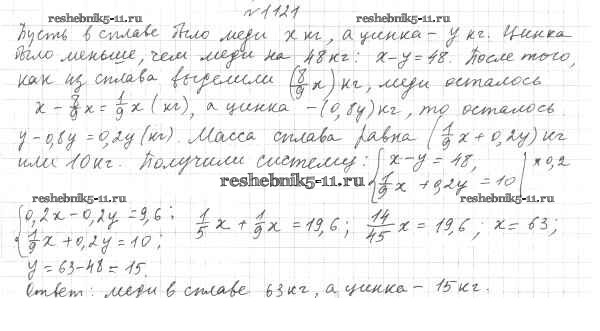 reshebnik5-11.ru № 1121 reshebnik5-11.ru
Пусть в сплаве было меди x кг, а цинка – y кг. Цинка
было меньше, чем меди на 48 кг: x-y=48. После того,
как из сплава выделили (8/9 x) кг, меди осталось
x - 8/9 x = 1/9 x (кг), а цинка – (0,8y) кг, то осталось
y-0,8y=0,2y (кг). Масса сплава равна (1/9 x + 0,2y) кг
или 10 кг. Получили систему: { x-y=48, 1/9 x + 0,2y = 10 | * 0,2
reshebnik5-11.ru
reshebnik5-11.ru reshebnik5-11.ru
{ 0,2x-0,2y=9,6; 1/9 x + 0,2y = 10; 1/5 x + 1/9 x = 19,6; 14/45 x = 19,6; x = 63;
y = 63-48 = 15.
Ответ: меди в сплаве 63 кг, а цинка – 15 кг.